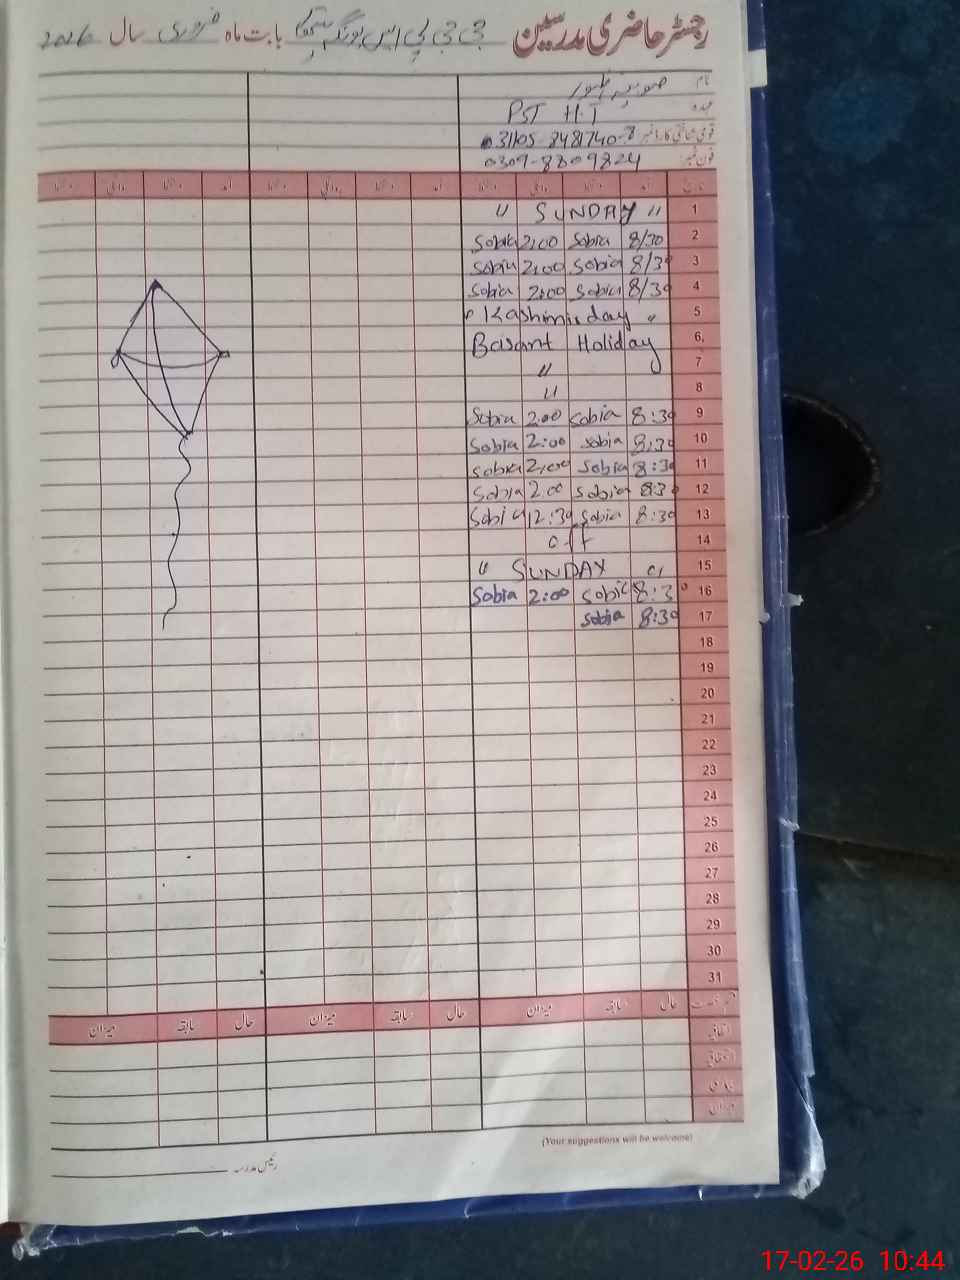 رجسٹر حاضری مدرسین جی جی پی ایس بابت ماہ فروری سال 2026
نام
عہدہ PST H.T
قومی شناختی کارڈ نمبر
فون نمبر: 0309-8809824
تاریخ آمد دستخط روانگی دستخط آمد دستخط روانگی دستخط آمد دستخط روانگی دستخط
1 " SUNDAY "
2 8/30 Sobia 2:00 Sobia
3 8/30 Sobia 2:00 Sobia
4 8/30 Sobia 2:00 Sobia
5 " Kashmir day "
6 Basant Holiday
7 "
8 "
9 8:30 Sobia 2:00 Sobia
10 8:30 Sobia 2:00 Sobia
11 8:30 Sobia 2:00 Sobia
12 8:30 Sobia 2:00 Sobia
13 8:30 Sobia 12:30 Sobia
14 off
15 " SUNDAY "
16 8:30 Sobia 2:00 Sobia
17 8:30 Sobia
18
19
20
21
22
23
24
25
26
27
28
29
30
31
حال سابقہ میزان حال سابقہ میزان حال سابقہ میزان
اتفاقیہ
استحقاقی
بیماری
میزان
(Your suggestions will be welcome)
رئیس مدرسہ
17-02-26 10:44